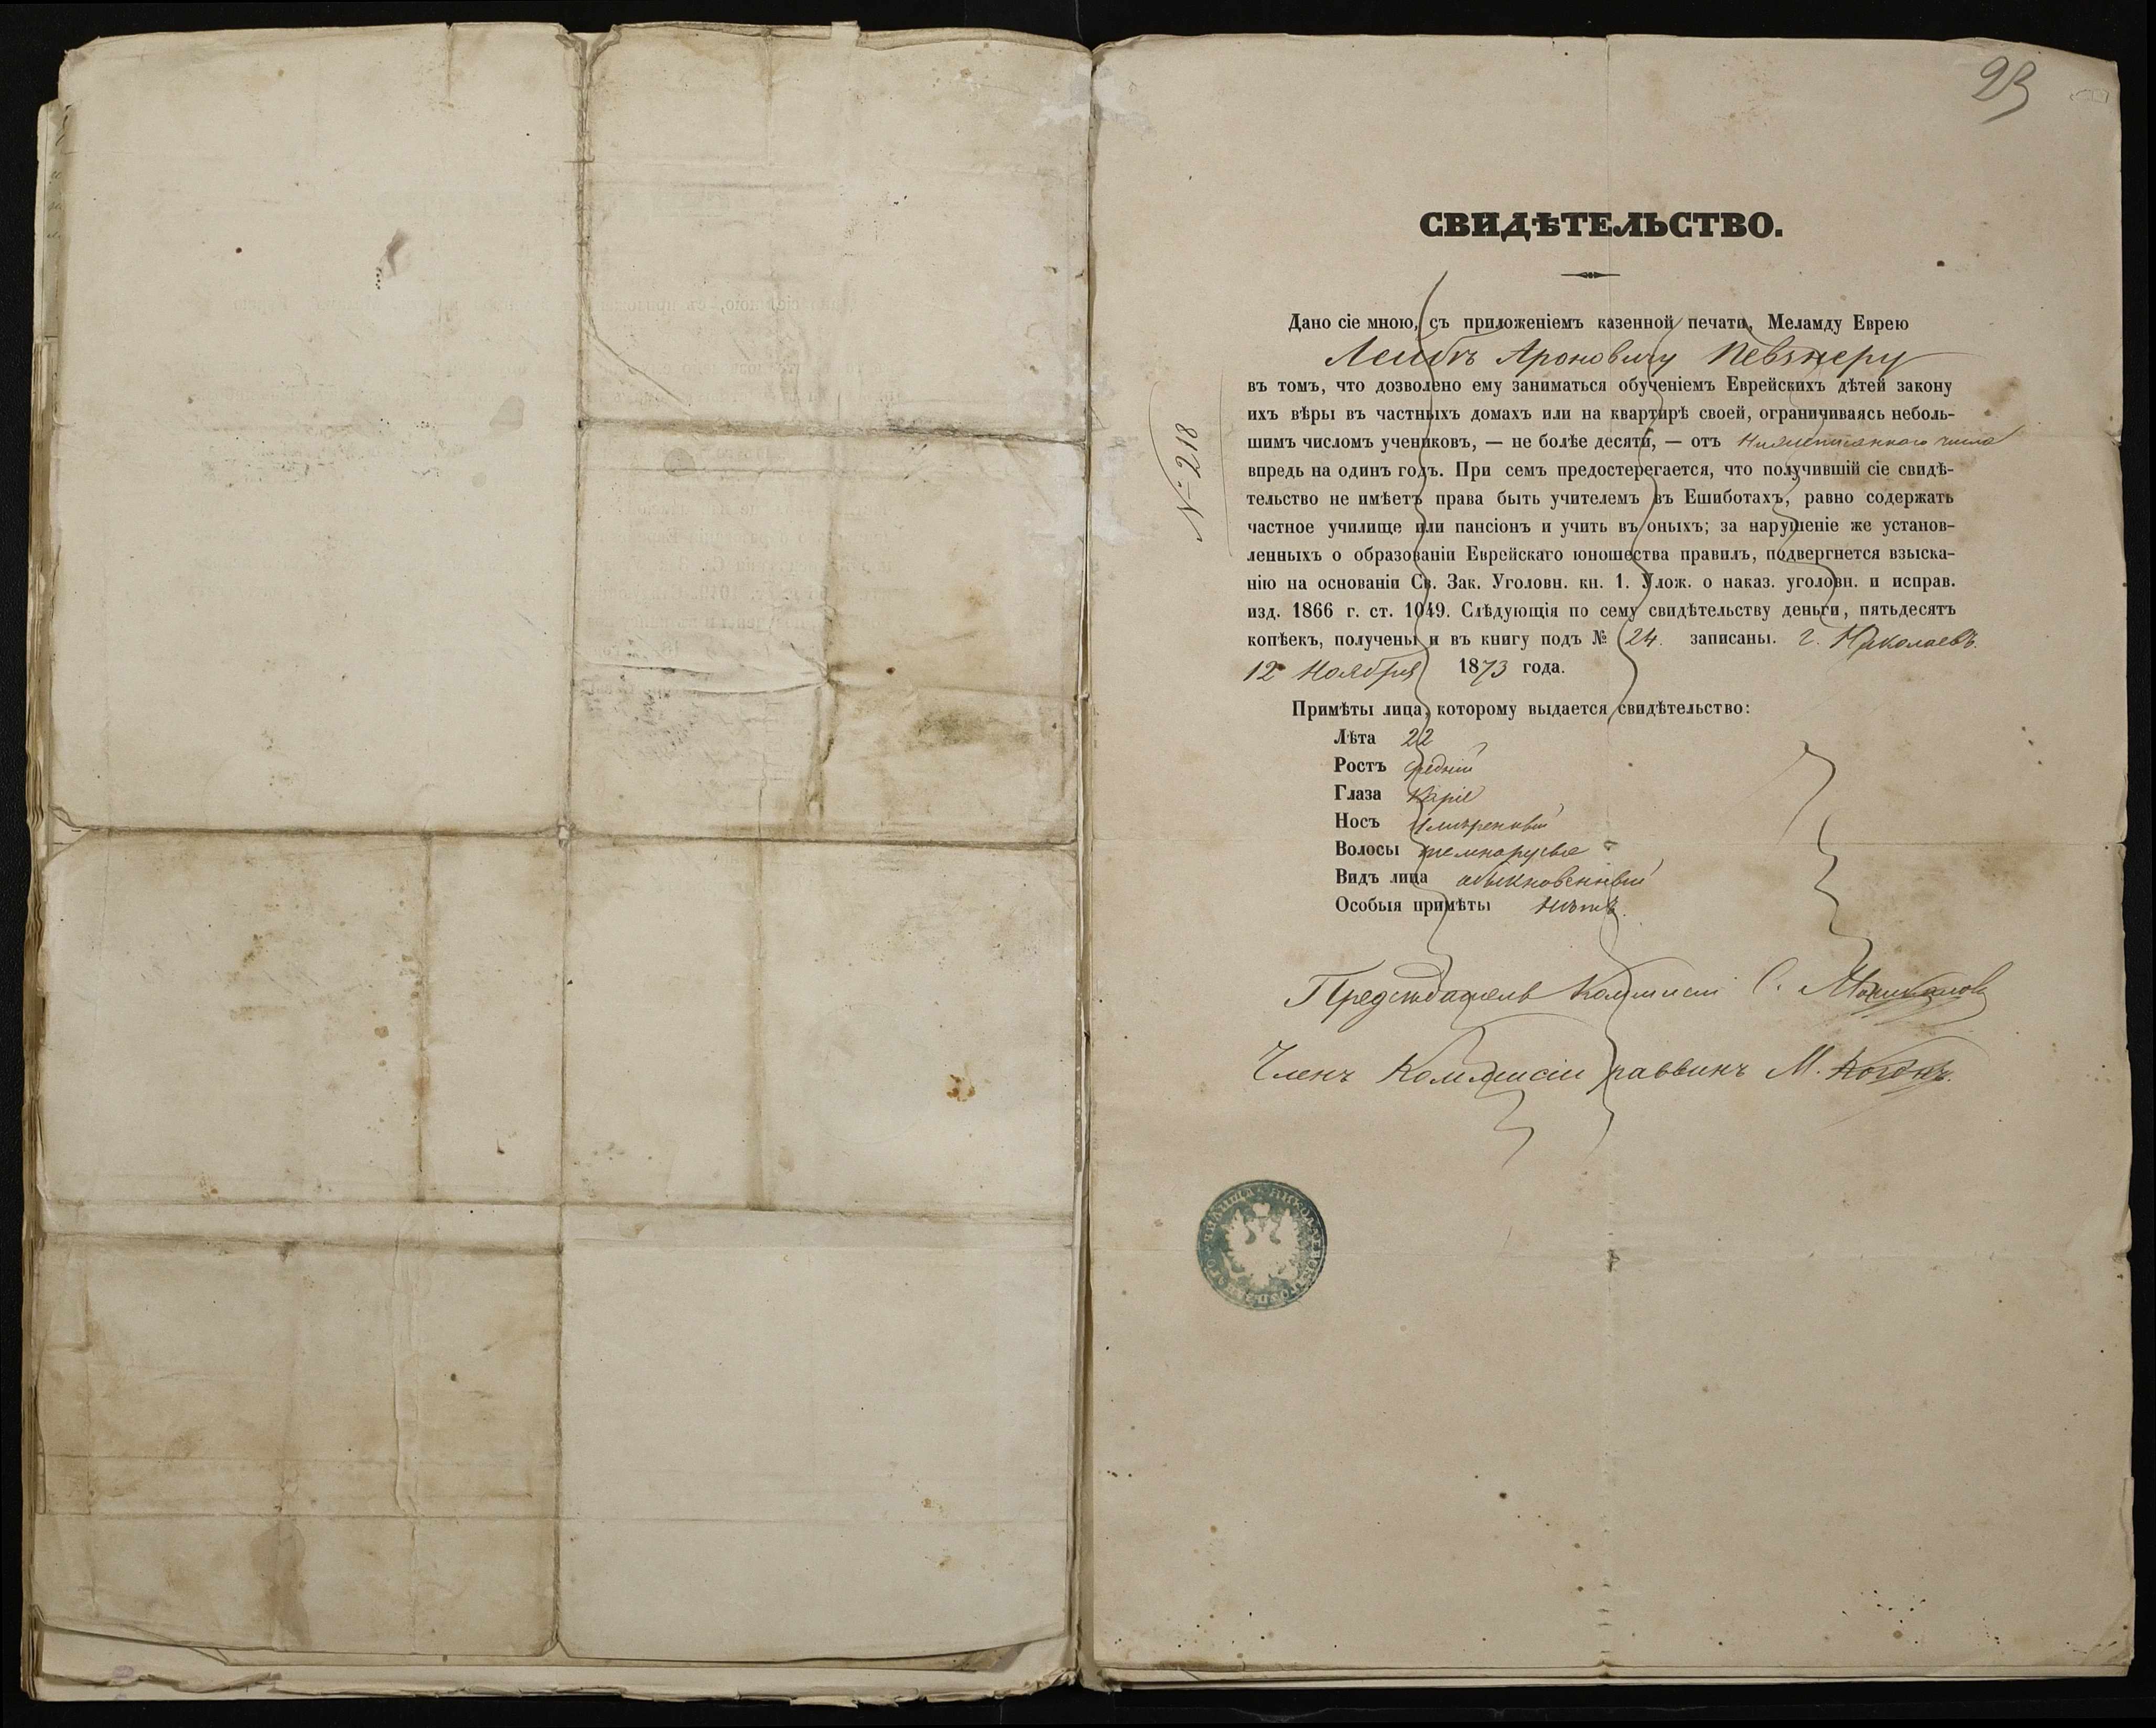 23
СВИДѢТЕЛЬСТВО.
Дано сіе мною, съ приложеніемъ казенной печати, Меламду Еврею
Лейбѣ Ароновичу Певзнеру
въ томъ, что дозволено ему заниматься обученіемъ Еврейскихъ дѣтей закону
ихъ вѣры въ частныхъ домахъ или на квартирѣ своей, ограничиваясь неболь-
шимъ числомъ учениковъ, — не болѣе десяти, — отъ нижеписаннаго числа
впредь на одинъ годъ. При семъ предостерегается, что получившій сіе свидѣ-
тельство не имѣетъ права быть учителемъ въ Ешиботахъ, равно содержать
частное училище или пансіонъ и учить въ оныхъ; за нарушеніе же установ-
ленныхъ о образованіи Еврейскаго юношества правилъ, подвергнется взыска-
нію на основаніи Св. Зак. Уголовн. кн. 1. Улож. о наказ. уголовн. и исправ.
изд. 1866 г. ст. 1049. Слѣдующія по сему свидѣтельству деньги, пятьдесятъ
копѣекъ, получены и въ книгу подъ № 24. записаны. г. Николаевъ.
12 Ноября 1873 года.
№ 218
Примѣты лица, которому выдается свидѣтельство:
Лѣта 22
Ростъ средній
Глаза Каріе
Носъ умѣренный
Волосы темнорусые
Видъ лица обыкновенный
Особыя примѣты нѣтъ.
Предсѣдатель Коммисіи С.
Членъ Коммисіи раввинъ М. Коганъ.
НИКОЛАЕВСКАГО УѢЗДНАГО УЧИЛИЩА